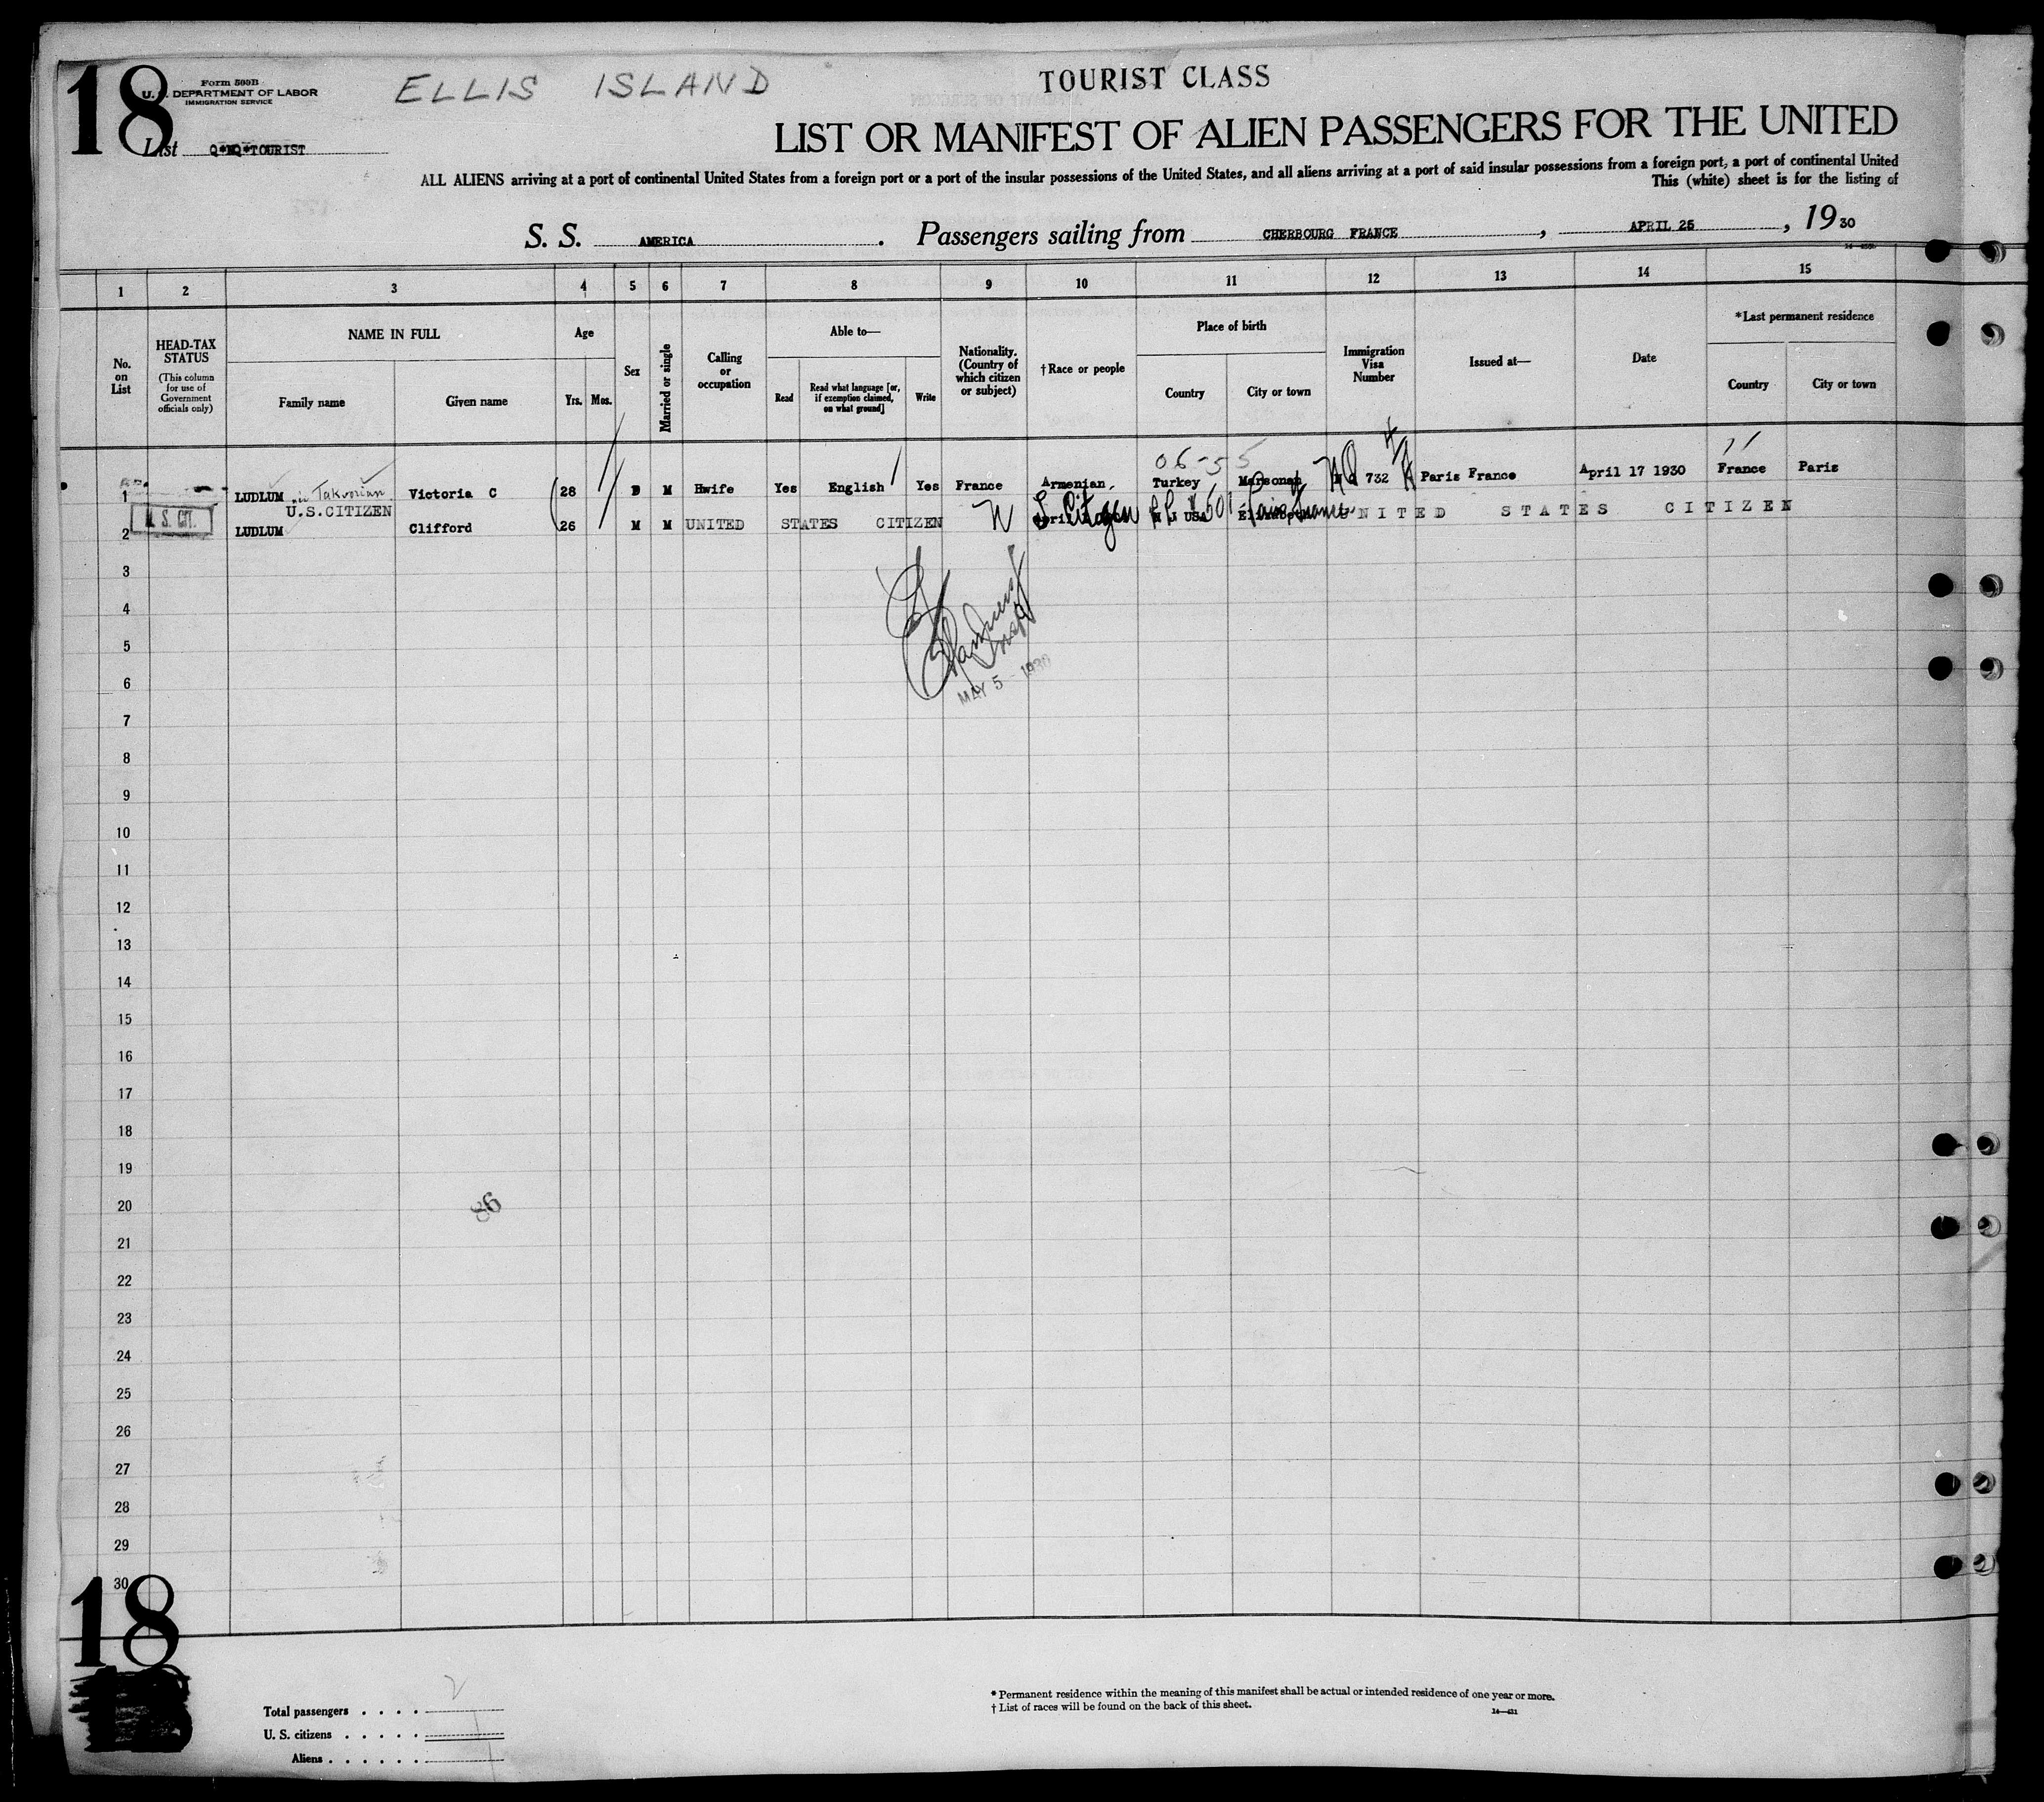 18
Form 500B
U. S. DEPARTMENT OF LABOR
IMMIGRATION SERVICE
ELLIS ISLAND
TOURIST CLASS
List TOURIST
LIST OR MANIFEST OF ALIEN PASSENGERS FOR THE UNITED
ALL ALIENS arriving at a port of continental United States from a foreign port or a port of the insular possessions of the United States, and all aliens arriving at a port of said insular possessions from a foreign port, a port of continental United
This (white) sheet is for the listing of
S. S. AMERICA . Passengers sailing from CHERBOURG FRANCE , APRIL 25 , 1930
1 2 3 4 5 6 7 8 9 10 11 12 13 14 15
No. on List
HEAD-TAX STATUS
(This column for use of Government officials only)
NAME IN FULL
Family name
Given name
Age
Yrs. Mos.
Sex
Married or single
Calling or occupation
Able to—
Read
Read what language [or, if exemption claimed, on what ground]
Write
Nationality. (Country of which citizen or subject)
† Race or people
Place of birth
Country
City or town
Immigration Visa Number
Issued at—
Date
*Last permanent residence
Country
City or town
06-55
1 LUDLUM née Takvorian Victoria C 28 M Hwife Yes English Yes France Armenian Turkey Marsonan NQ 732 Paris France April 17 1930 France Paris
U.S.CITIZEN
U. S. CIT.
2 LUDLUM Clifford 26 M M UNITED STATES CITIZEN USA UNITED STATES CITIZEN
3
4
5
6
MAY 5 1930
7
8
9
10
11
12
13
14
15
16
17
18
19
20
86
21
22
23
24
25
26
27
28
29
30
18
Total passengers . . . . 2
U. S. citizens . . . . . 1
Aliens . . . . . . 1
* Permanent residence within the meaning of this manifest shall be actual or intended residence of one year or more.
† List of races will be found on the back of this sheet.
14—421